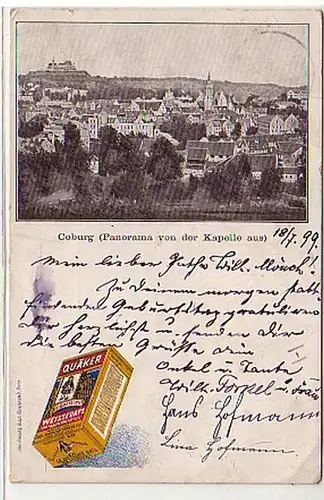 Coburg (Panorama von der Kapelle aus)
18/7. 99.
Mein lieber Pathe Will. Mönch!
Zu Deinem morgen statt
findenden Geburtstag gratulieren
Dir herzlichst u. senden Dir
die besten Grüsse Dein
Onkel u. Tante
Wilh. u. Frau
Hans Hofmann
Lina Hofmann
QUÄKER
WEISSE OATS